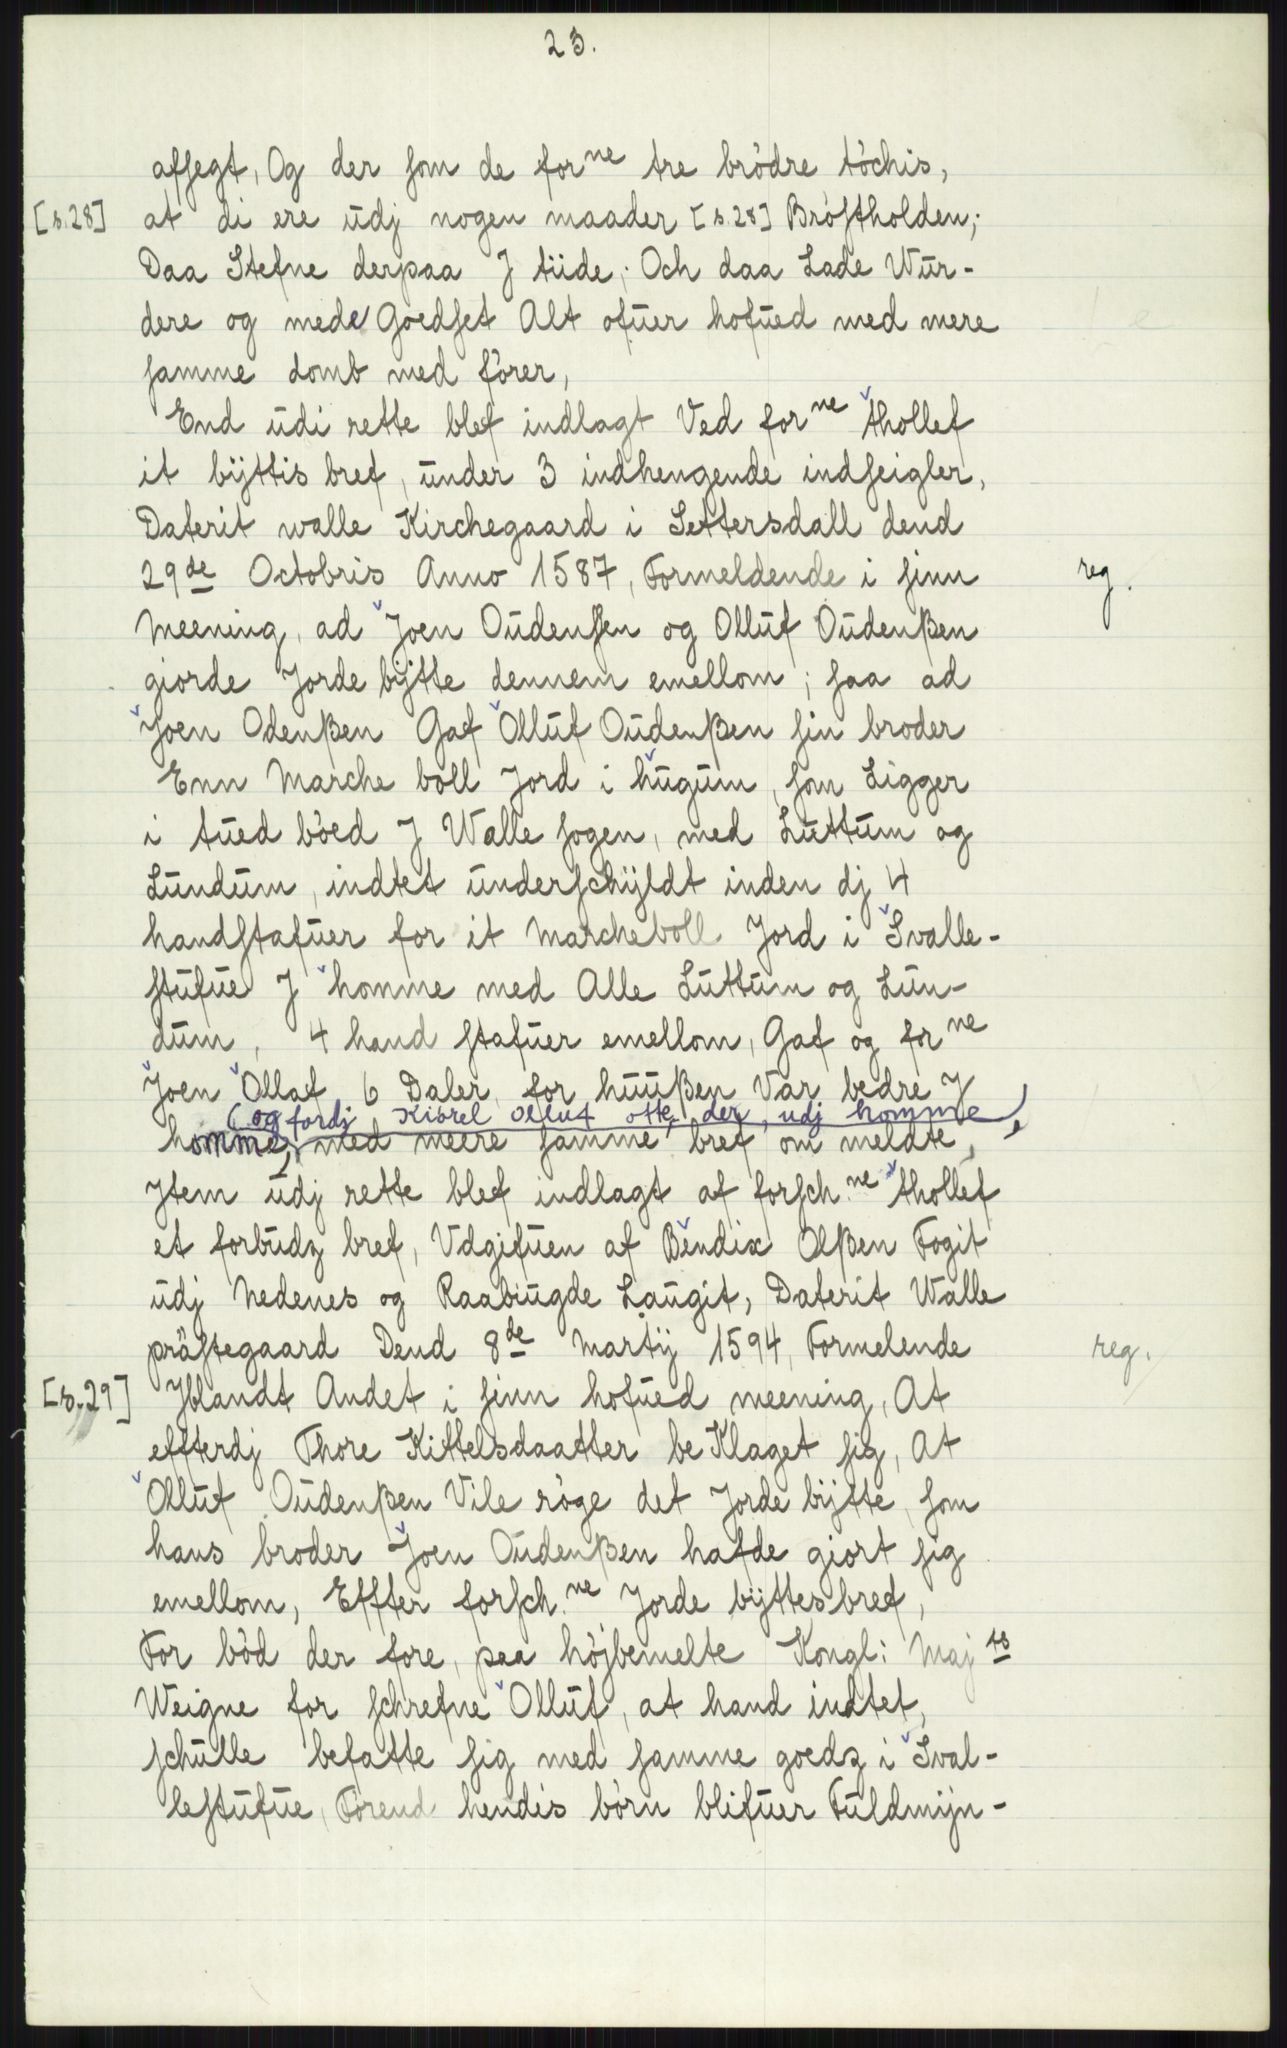 23.
afsegt, Og der som de forne tre brödre töchis,
[s.28] at di ere udj nogen maader [s.28] Bröstholden;
Daa Stefne derpaa J tiide; Och daa Lade Wur-
dere og mede Goedset Alt ofuer hofued med mere
samme domb med förer,
End udi rette blef indlagt Ved forne thollef
it byttis bref, under 3 indhengende indseigler,
Daterit walle Kirchegaard i Settersdall dend
29de Octobris Anno 1587, Formeldende i sinn reg.
Meening, ad Joen Oudensen og Olluf Oudenßen
giorde Jorde bytte dennem emellom; saa ad
Joen Odenßen Gaf Olluf Oudenßen sin broder
Enn Marche boll Jord i hugum, som Ligger
i tued böed J Walle sogen, med Luttum og
Lundum, indtet underschyldt inden dj 4
handstafuer for it Marcheboll Jord i Svalle-
stufue J homme med Alle Luttum og Lun-
dum, 4 hand stafuer emellom, Gaf og forne
Joen Ollaf 6 Daler, for huußen Var bedre J
(og fordj Kiörel Olluf otte der, udj homme)
homme, med meere samme bref om meldte,
Jtem udj rette blef indlagt af forschne thollef
et forbudz bref, Vdgifuen af Bendix Olßen Fogit
udj Nedenes og Raabiugde Laugit, Daterit Walle
prästegaard Dend 8de Martij 1594, Formelende reg.
[s.29] Jblandt Andet i sinn hofued meening, At
effterdj Thore Kittelsdaatter be Klaget sig, At
Olluf Oudenßen Vile röge det Jorde bytte, som
hans broder Joen Oudenßen hafde giort sig
emellom, Effter forschne Jorde byttesbref,
For böd der fore, paa höjbemelte Kongl: Majts
Weigne for schrefne Olluf, at hand indtet,
schulle befatte sig med samme goedz i Sval-
lestufue, Förend hendis börn blifuer Fuldmyn-